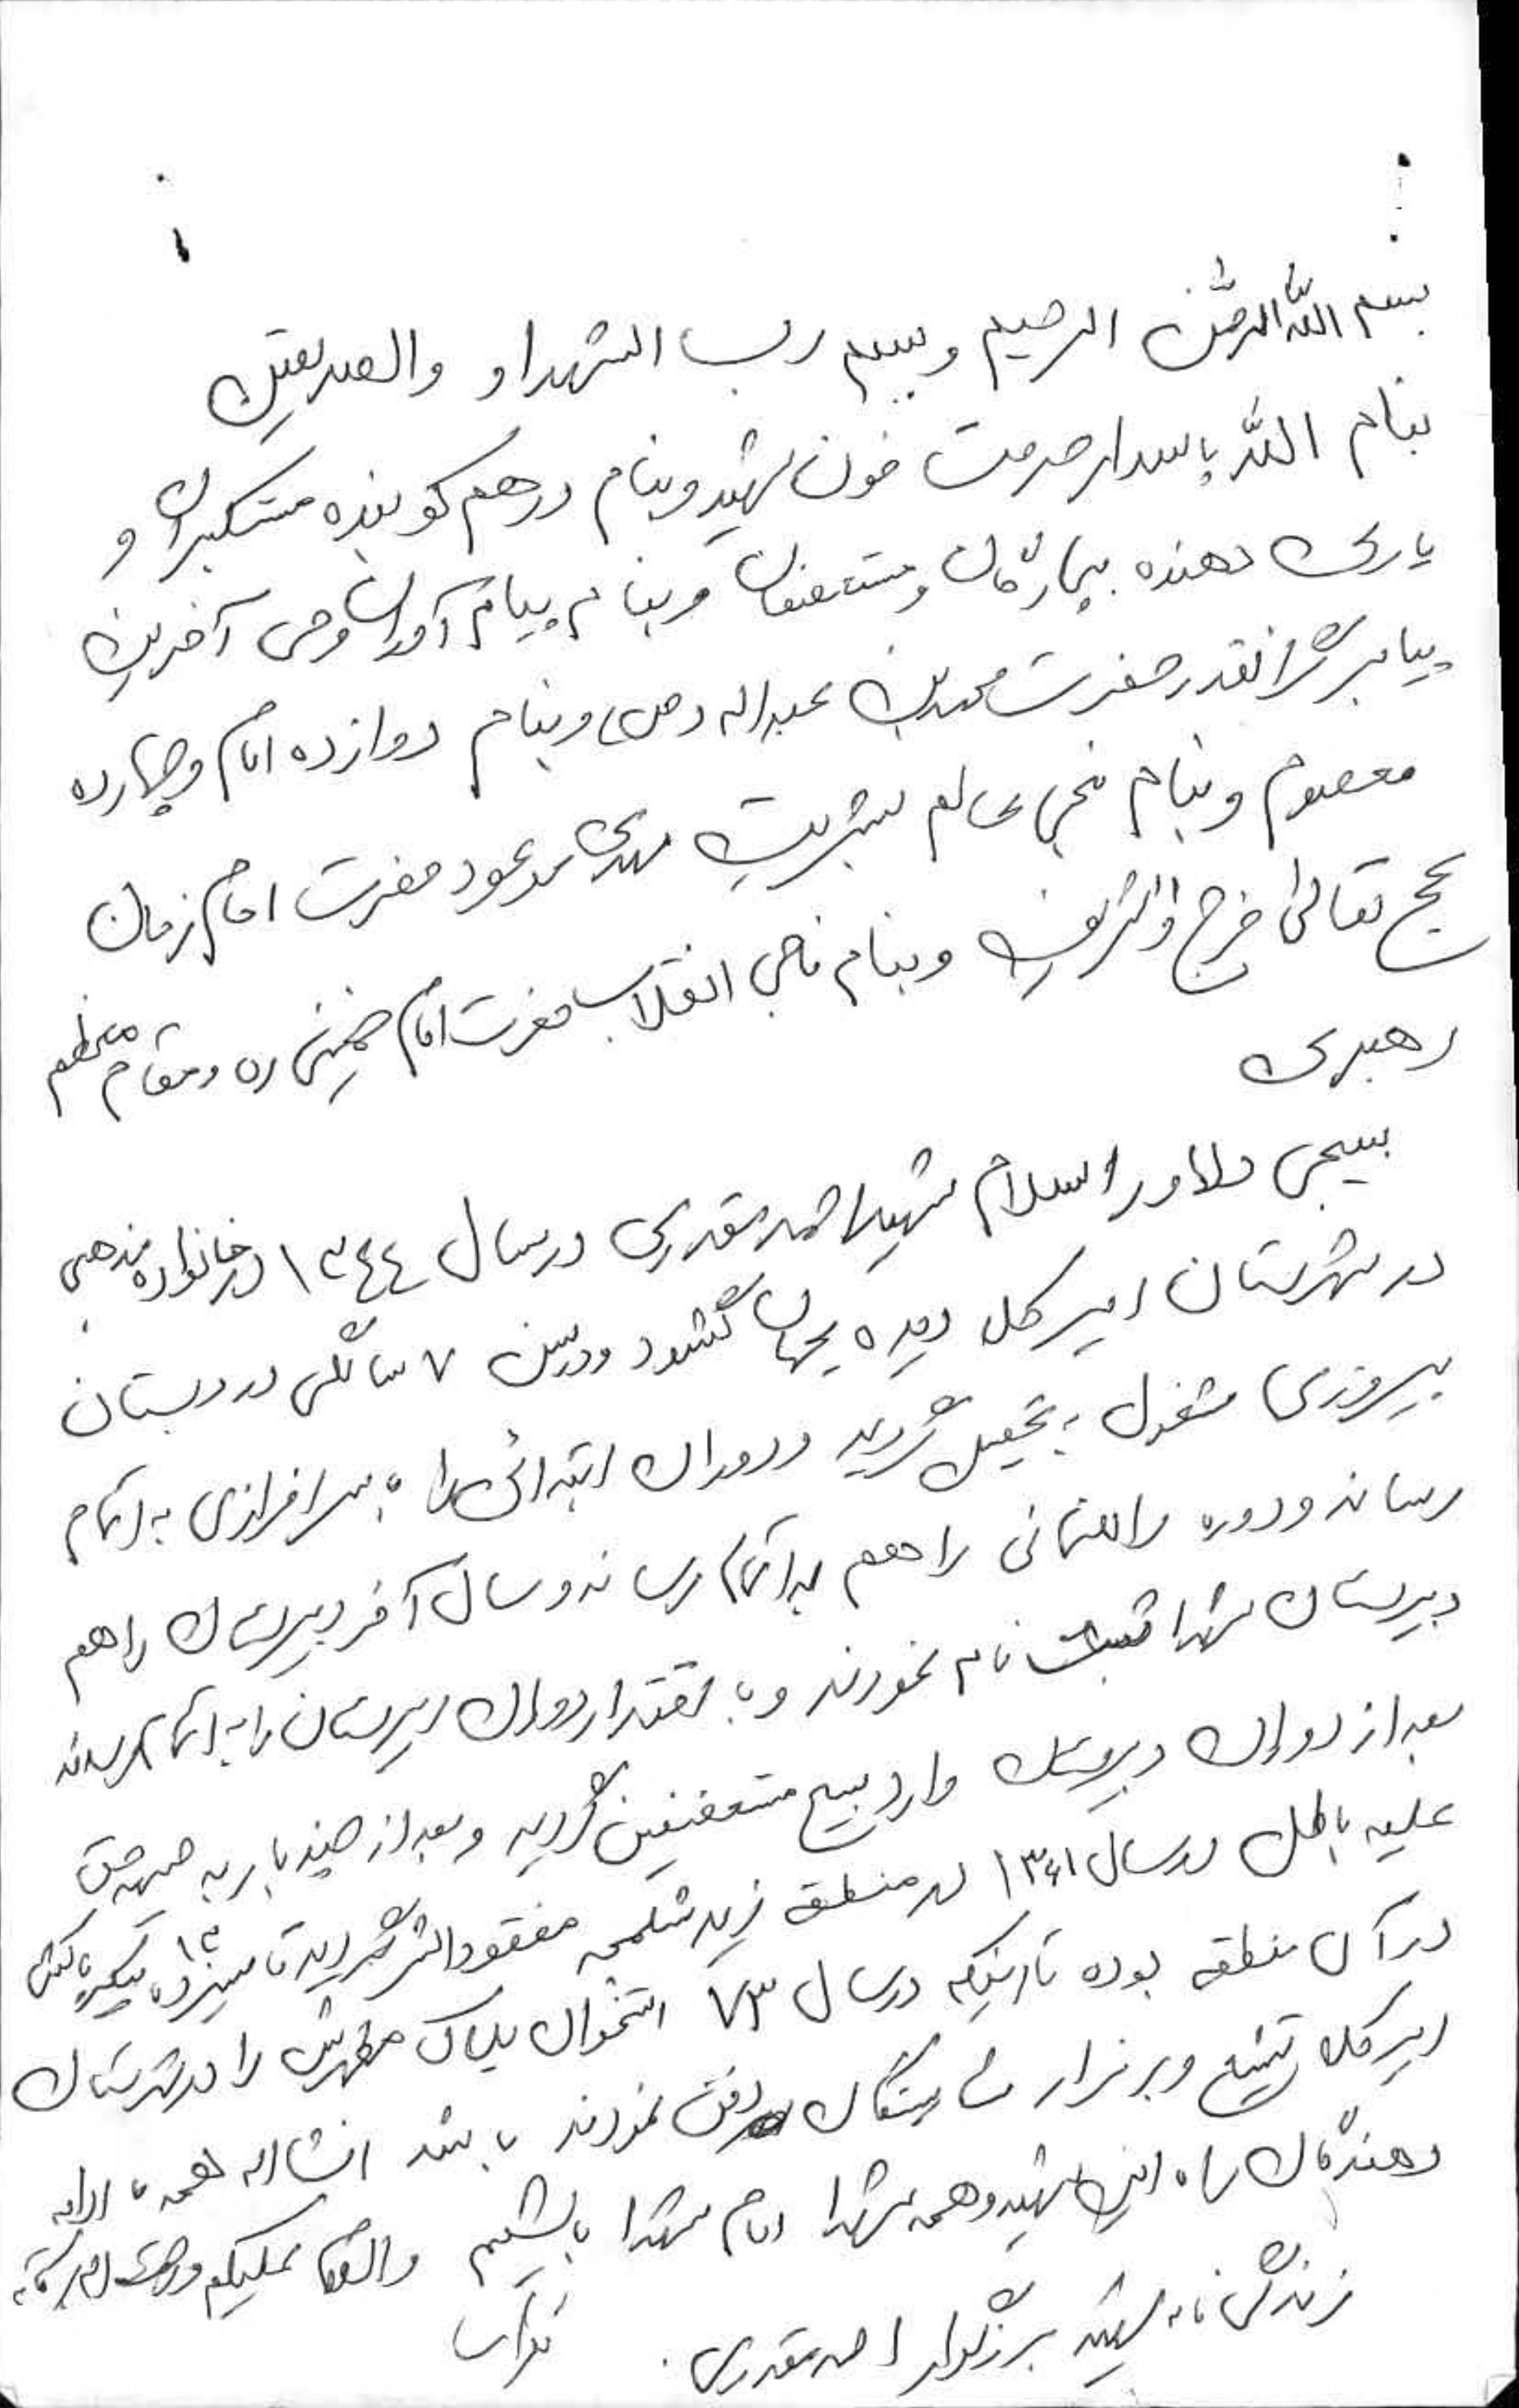 بسم الله الرحمن الرحیم وبسم رب الشهدا و والصدیقین
بنام الله پاسدار حرمت خون شهید وبنام درهم کوبنده مستکبران و
یاری دهنده بیچارگان و مستضعفان وبنام پیام آوران وحی آخرین
پیامبر گرانقدر حضرت محمدبن عبداله (ص) وبنام دوازده امام وچهارده
معصوم وبنام منجی عالم بشریت مهدی موعود حضرت امام زمان
عجج تعالی فرج والشریف وبنام ناجی انقلاب حضرت امام خمینی ره ومقام معظم
رهبری
بسیجی دلاور اسلام شهید احمد مقدری درسال ۱۳٤٤ در خانواده مذهبی
در شهرستان امیرکلا دیده بجهان گشود ودرسن ۷ سالگی در دبستان
پیروزی مشغول به تحصیل گردید ودوران ابتدائی را با سرافرازی به اتمام
رساند ودوره راهنمائی را هم به اتمام رساند وسال آخر دبیرستان راهم
دبیرستان شهدا ثبت نام نمودند وبا اقتدار دوران دبیرستان را به اتمام رساند
بعد از دوران دبیرستان وارد بسیج مستضعفین گردید وبعد از چند بار به جبهه حق
علیه باطل درسال ۱۳۶۱ در منطقه زید شلمچه مفقودالاثر گردید تا سیزده ۱۳ پیکر پاکش
در آن منطقه بوده تا اینکه درسال ۷۳ استخوان پاک مطهرش را در شهرستان
امیرکلا تشییع وبر مزار دفن نمودند باشد انشااله همه ما ادامه
دهندگان راه این شهید وهمه شهدا امام شهدا باشیم والسلام علیکم ورحمت اله وبرکاته
زندگی نامه شهید بزرگوار احمد مقدری.